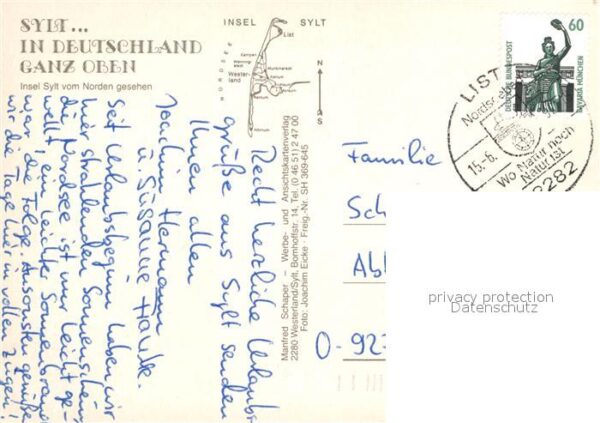 SYLT...
IN DEUTSCHLAND
GANZ OBEN
Insel Sylt vom Norden gesehen
INSEL SYLT
NORDSEE
List
Kampen
Wester-
land
Keitum
Hörnum
N
S
60
DEUTSCHE BUNDESPOST
BAVARIA MÜNCHEN
LIST
Nordseebad
15.-6.
Wo Natur noch
Natur ist
2282
Manfred Schaper – Werbe- und Ansichtskartenverlag
2280 Westerland/Sylt, Bomhoffstr. 14, Tel. (0 46 51) 2 47 00
Foto: Joachim Eicke · Freig.-Nr. SH 369-645
Recht herzliche Urlaubs
grüße aus Sylt senden
Ihnen allen
Joachim Hermann
u. Susanne Hauke.
Seit Urlaubsbeginn haben wir
hier strahlenden Sonnenschein,
die Nordsee ist nur leicht ge-
wellt, ein leichter Sonnenbrand
war die Folge. Ansonsten genießen
wir die Tage hier in vollen Zügen!
Familie
Sch
Abt
O-92
privacy protection
Datenschutz